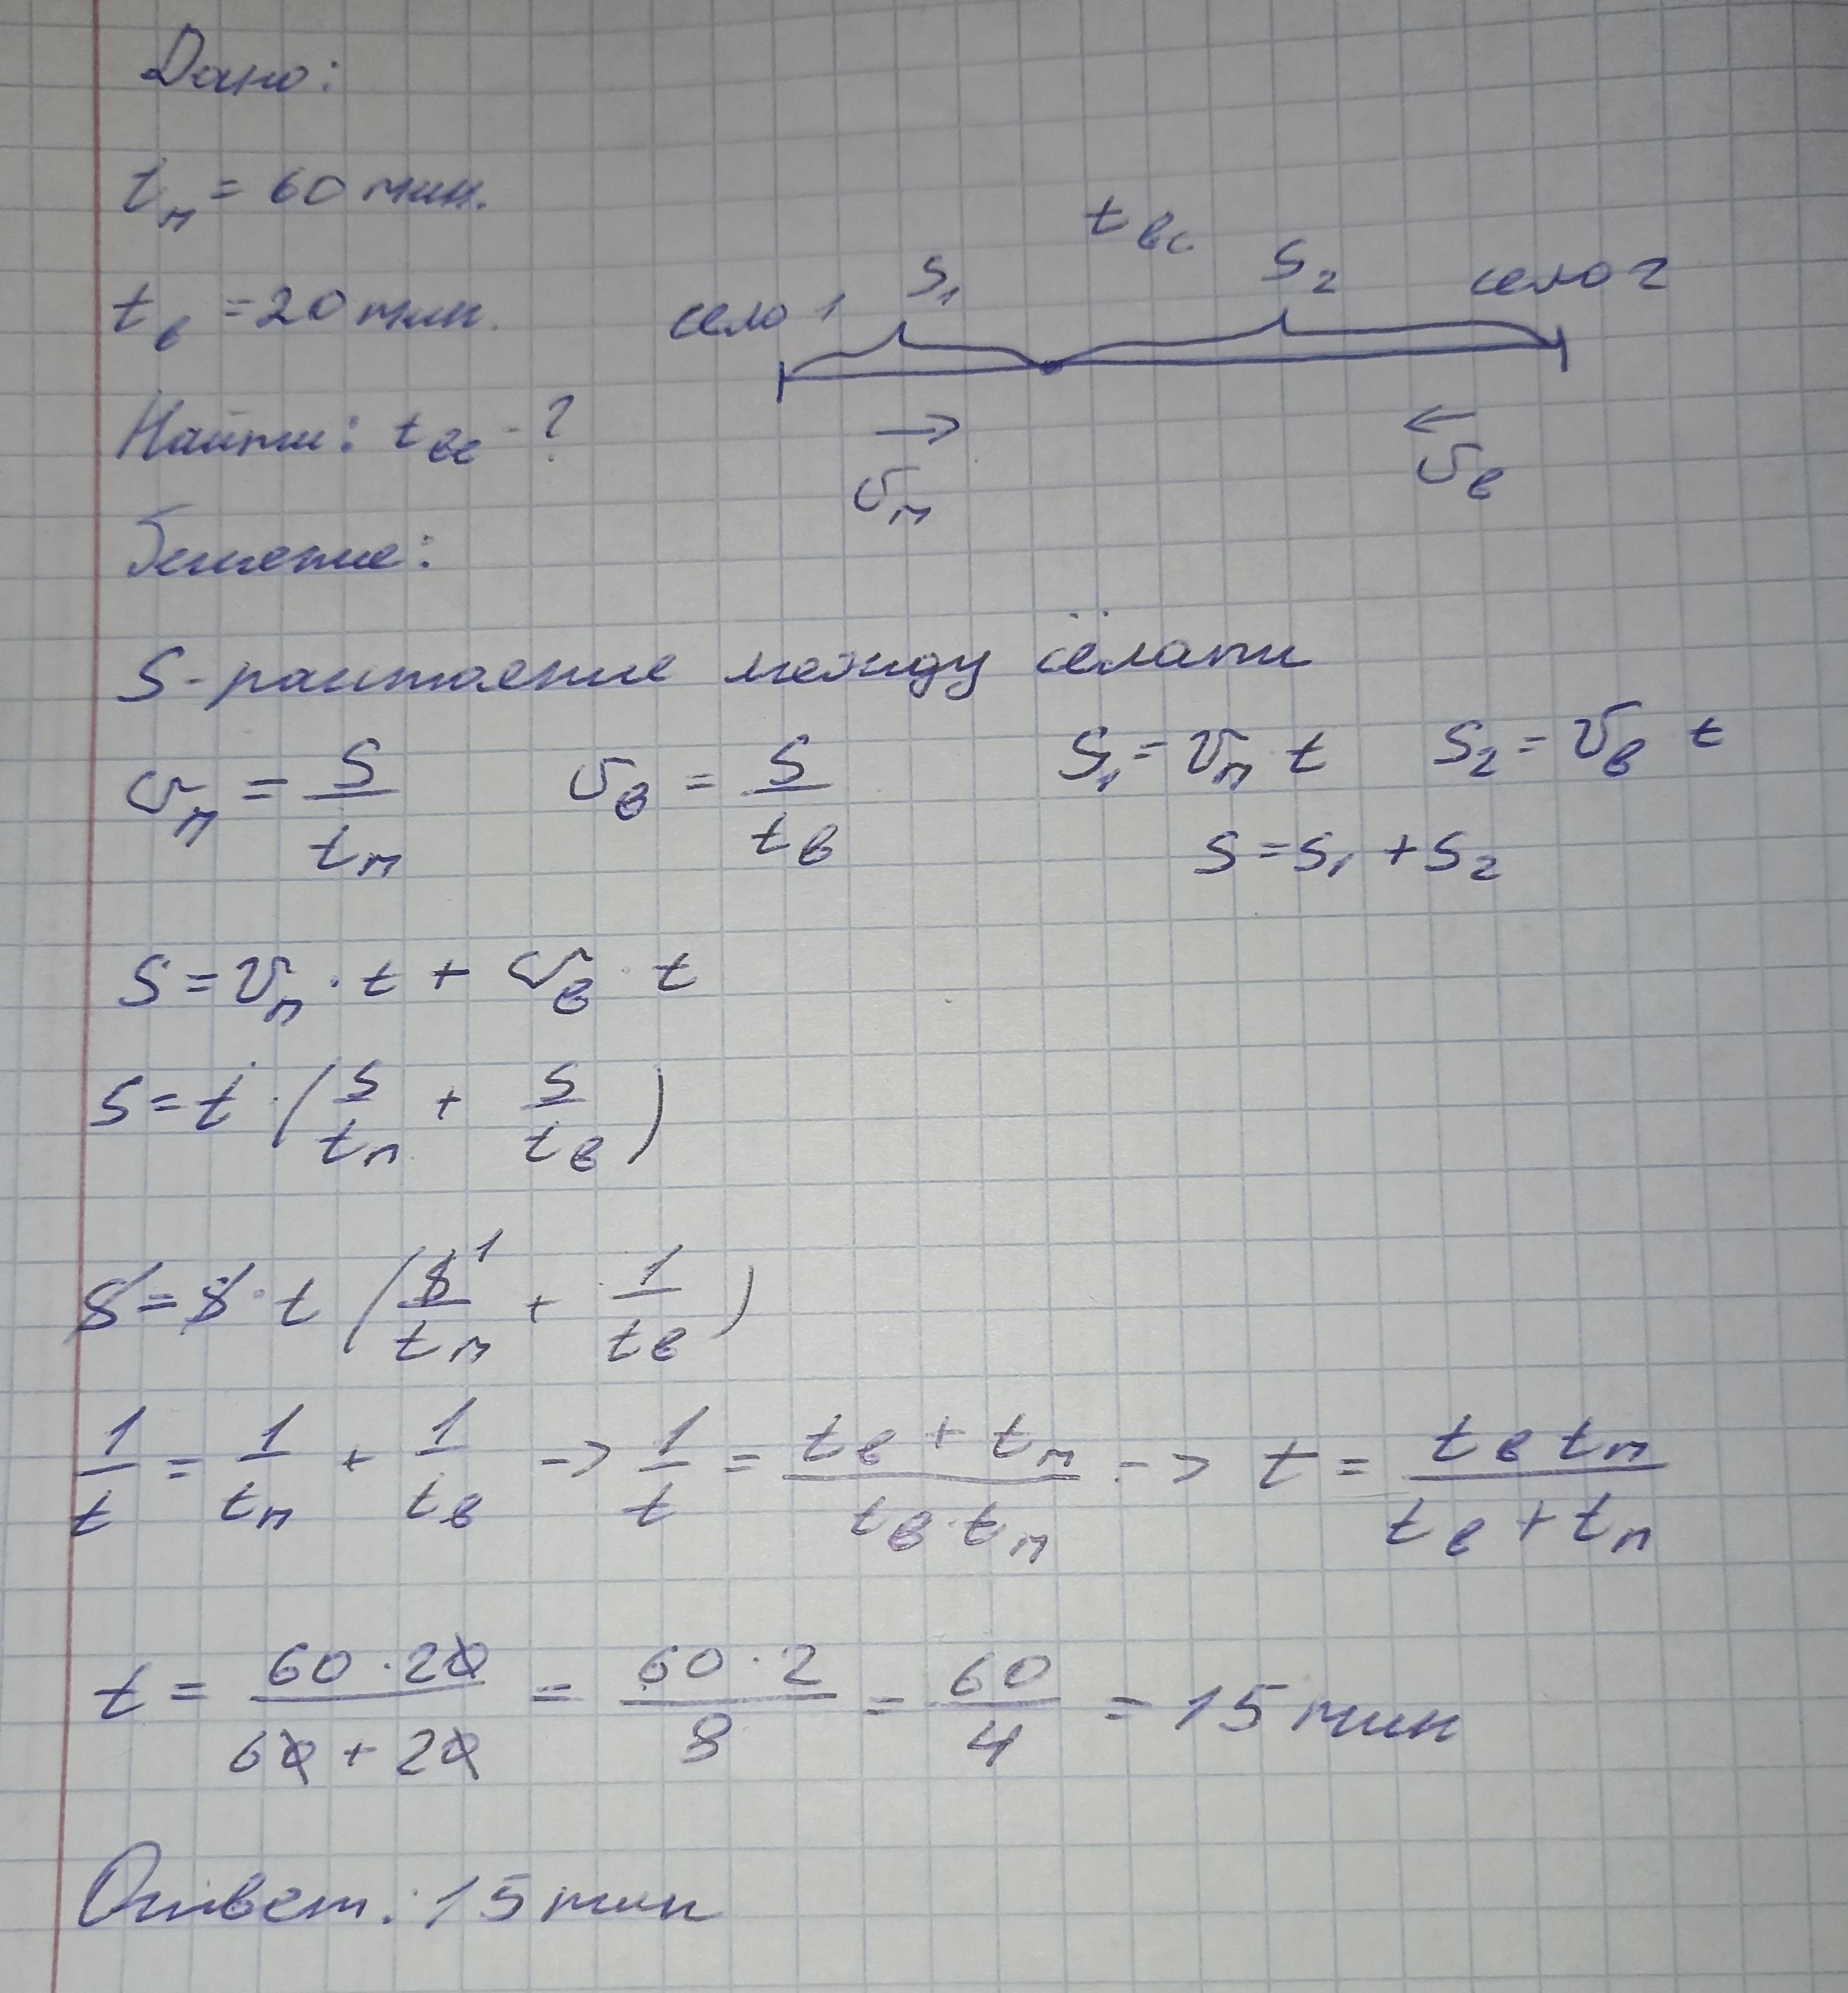 Дано:
tп = 60 мин.
tв = 20 мин.
Найти: tвс - ?
tвс.
село 1 S₁ S₂ село 2
→ ←
υп υв
Решение:
S - расстояние между сёлами
υп = S/tп υв = S/tв S₁ = υп t S₂ = υв t
S = S₁ + S₂
S = υп · t + υв · t
S = t · (S/tп + S/tв)
S = S · t (1/tп + 1/tв)
1/t = 1/tп + 1/tв -> 1/t = (tв + tп)/(tв · tп) -> t = (tв tп)/(tв + tп)
t = (60 · 20)/(60 + 20) = (60 · 2)/8 = 60/4 = 15 мин
Ответ: 15 мин